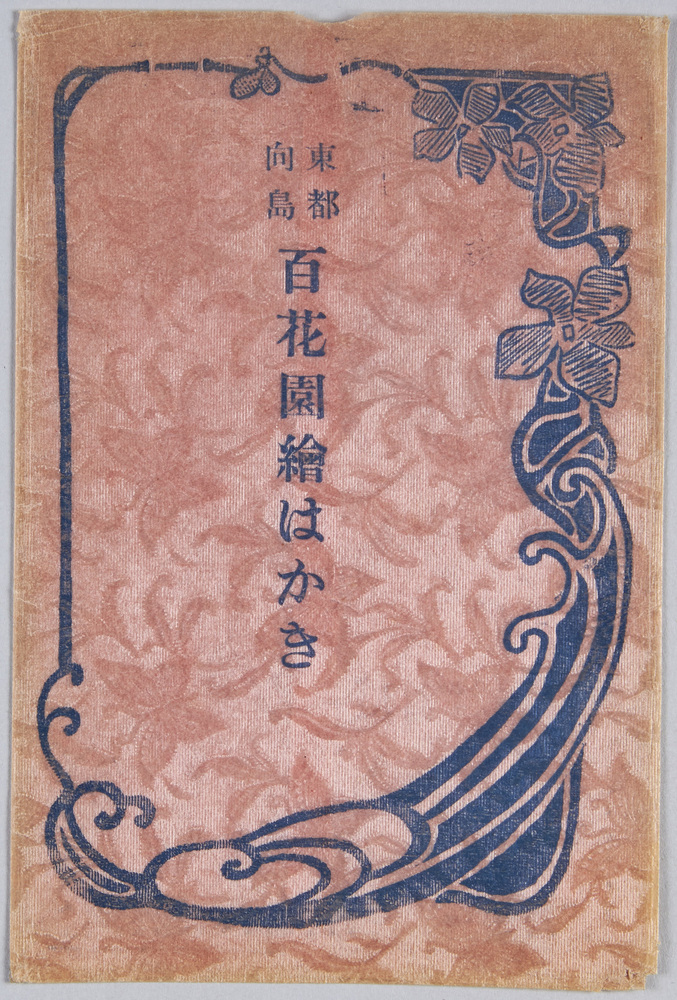 東都
向島
百花園繪はかき